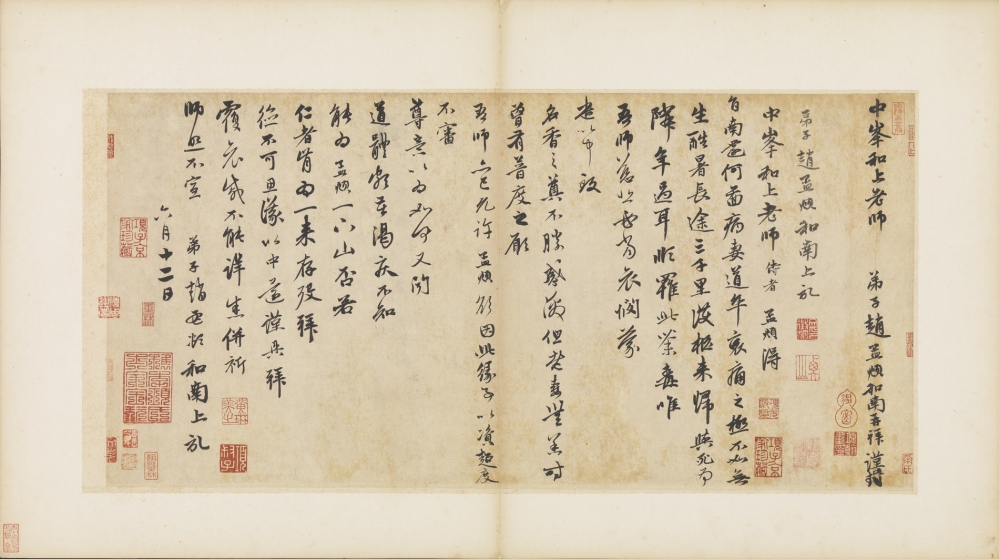 中峯和上老師 弟子趙孟頫和南再拜謹封
弟子趙孟頫和南上記
中峯和上老師侍者孟頫得
旨南還何圖病妻道卒哀痛之極不如無
生酷暑長途三千里護柩來歸與死為
隣年過耳順罹此荼毒唯
吾師慈悲必當哀憫蒙
遣以中致
名香之奠不勝感激但老妻無恙時
曾有普度之願
吾師亦已允許孟頫欲因此緣事以資超度
不審
尊意以為如何又聞
道體頗苦渴疾不知
能為孟頫一下山否若
仁者肯為一來存歿拜
德不可思議以中還謹再拜
覆哀感不能詳悉併祈
師照不宣 弟子趙孟頫和南上記
六月十二日